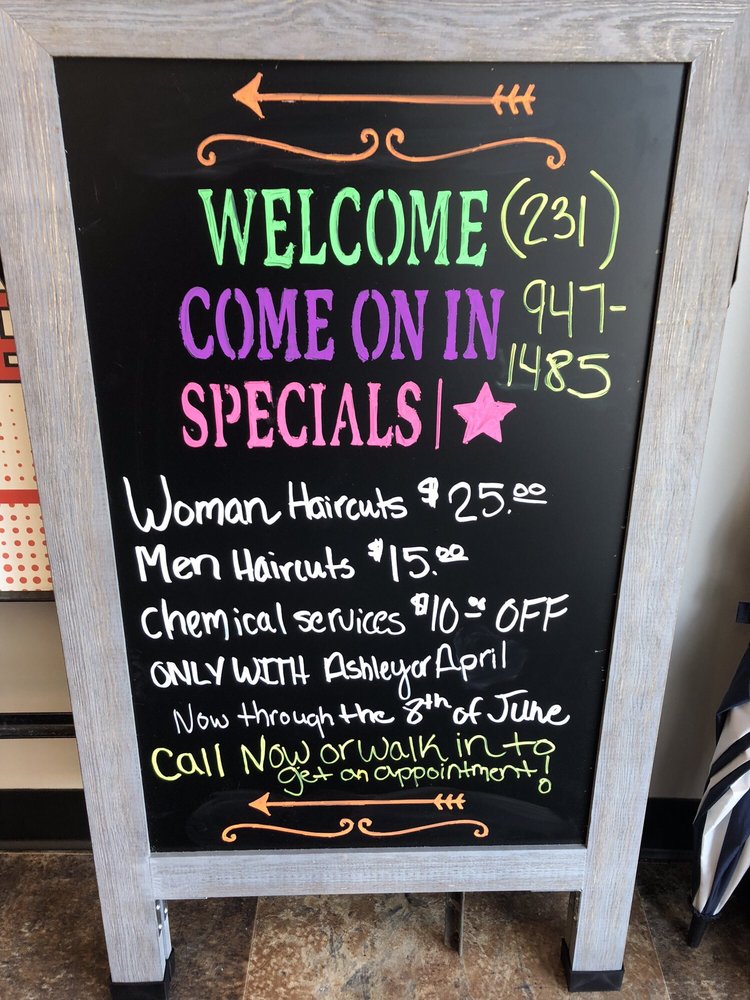 WELCOME (231)
COME ON IN 947-
1485
SPECIALS|
Woman Haircuts $25.00
Men Haircuts $15.00
Chemical services $10.00 OFF
ONLY WITH Ashley or April
Now through the 8th of June
Call Now or walk in to
get an appointment!